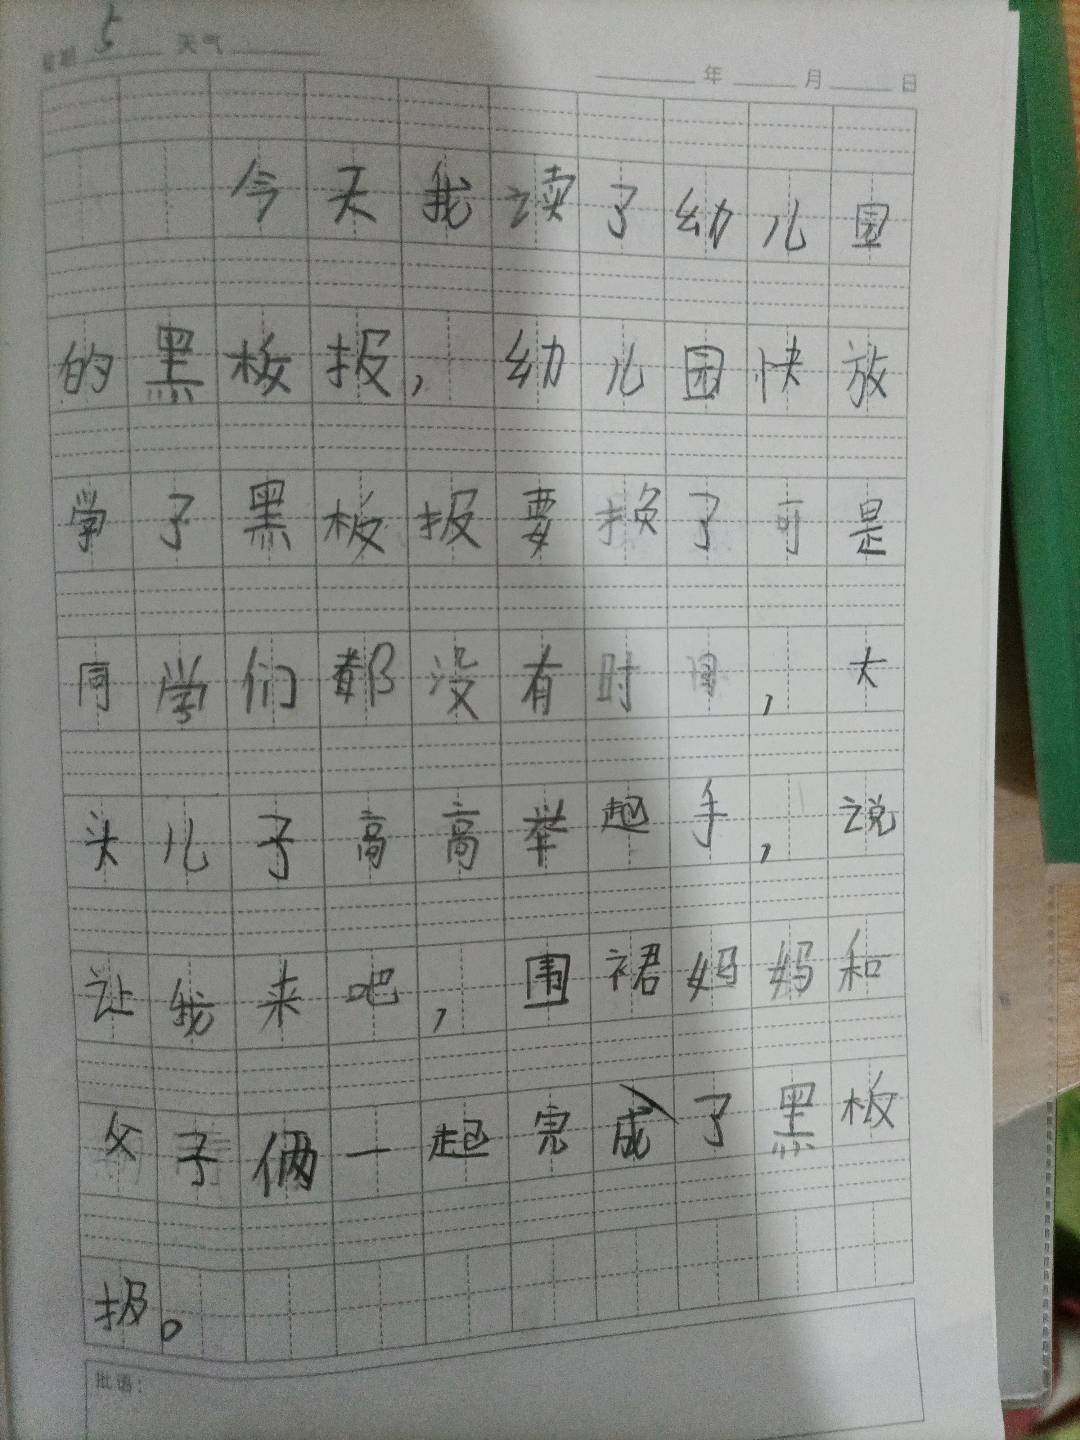 星期 5 天气
年 月 日
今天我读了幼儿园
的黑板报，幼儿园快放
学了黑板报要换了可是
同学们都没有时间，大
头儿子高高举起手，说
让我来吧，围裙妈妈和
父子俩一起完成了黑板
报。
批语：